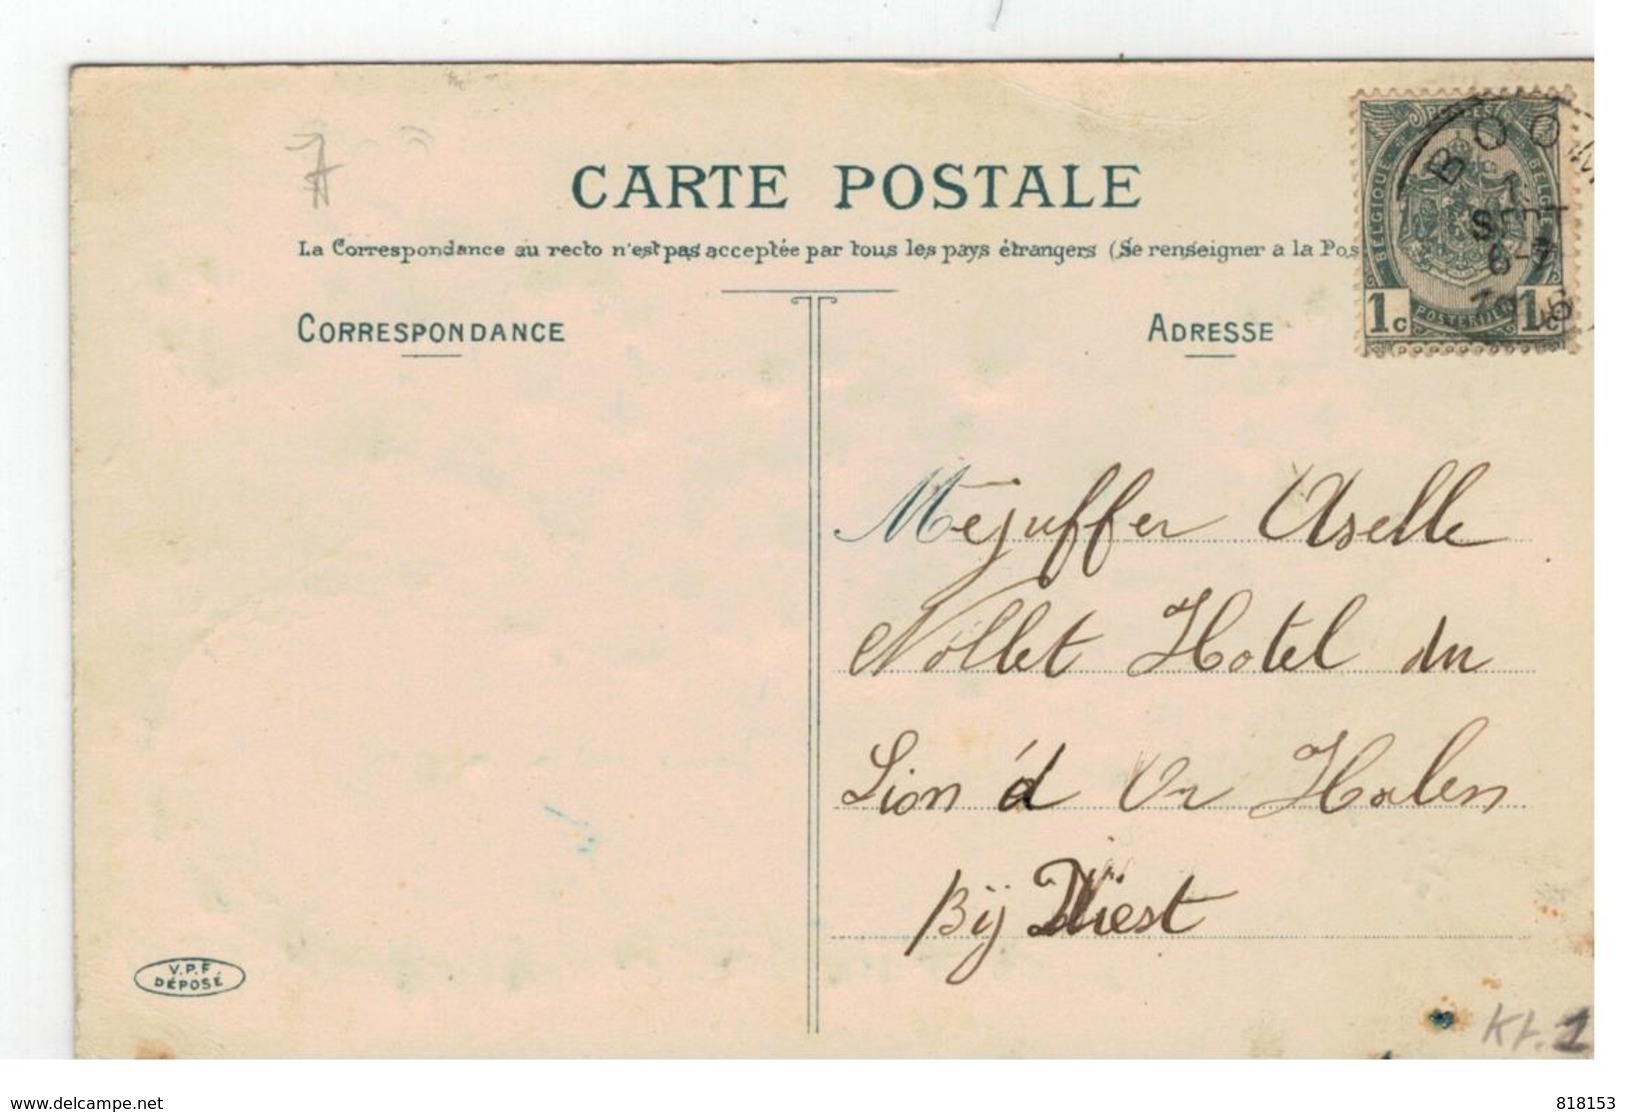 CARTE POSTALE
La Correspondance au recto n'est pas acceptée par tous les pays étrangers (Se renseigner a la Pos
CORRESPONDANCE
ADRESSE
POSTES
BELGIQUE
BELGIË
1c
POSTERIJEN
1c
BOOM
1
SEPT
6-7
Mejuffer Aselle
Nollet Hotel du
Lion d' Or Halen
Bij Diest
V.P.F.
DÉPOSÉ
Kt. 1
www.delcampe.net
818153